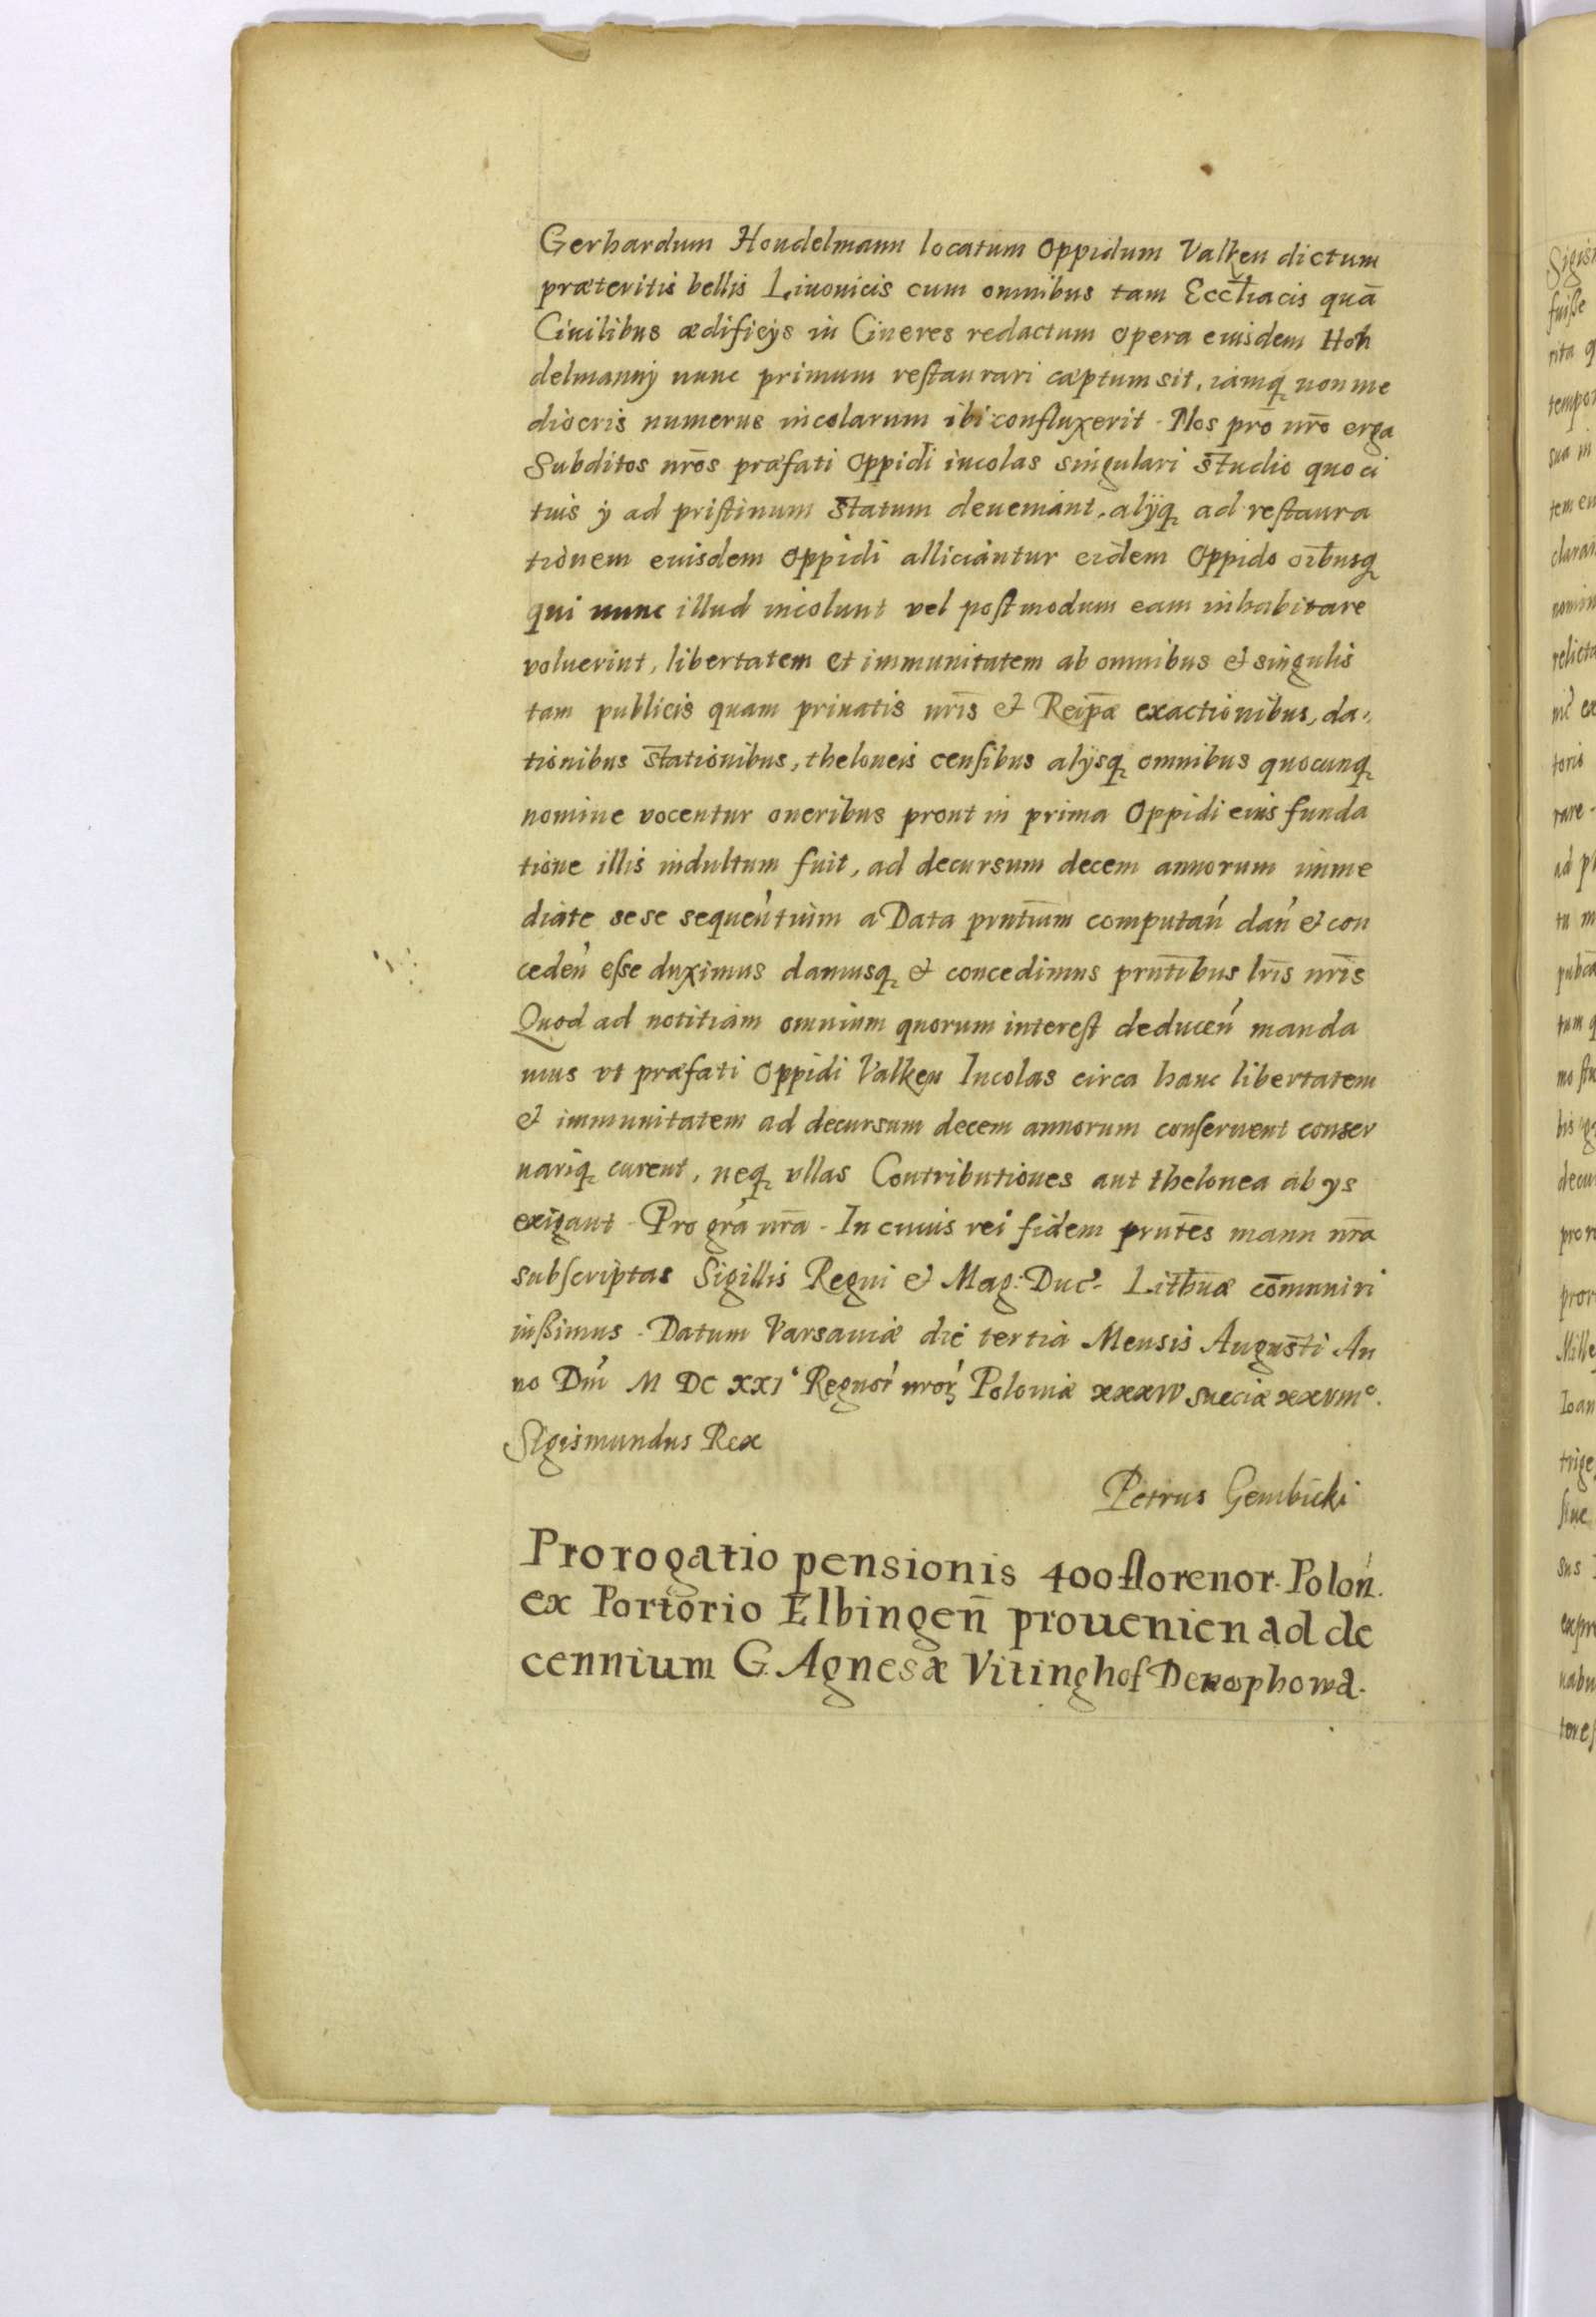 Gerhardum Hondelmann locatum Oppidum Valken dictum
præteritis bellis Liuonicis cum omnibus tam Eccl̃iacis quā
Ciuilibus ædificÿs in Cineres redactum opera eiusdem Hon
delmannÿ nunc primum restaurari cæptum sit, iamq non me
diocris numerus incolarum ibi confluxerit. Nos prō nr̃o erga
Subditos nr̃os præfati Oppidi incolas singulari studio quo ci
tius ÿ ad pristinum statum deueniant, alÿq ad restaura
tionem eiusdem Oppidi alliciantur eidem Oppido oībusq
qui nunc illud incolunt vel postmodum eam inhabitare
voluerint, libertatem et immunitatem ab omnibus & singulis
tam publicis quam priuatis nr̃is & Reip̃æ exactionibus, da-
tionibus stationibus, theloneis censibus alÿsq omnibus quocunq
nomine vocentur oneribus prout in prima Oppidi eius funda
tione illis indultum fuit, ad decursum decem annorum imme
diate sese sequen̓tium a Data prn̄tium computan̓ dan̓ & con
ceden̓ esse duximus damusq & concedimus prn̄tibus lr̃is nr̃is
Quod ad notitiam omnium quorum interest deducen̓ manda
mus vt præfati Oppidi Valken Incolas circa hanc libertatem
& immunitatem ad decursum decem annorum conseruent conser
uariq curent, neq vllas Contributiones aut thelonea ab ys
exigant. Pro gr̃a nr̃a. In cuius rei fidem prn̄tes manu nr̃a
subscriptas Sigillis Regni & Mag: Duc̓. Lith̃uæ com̄uniri
iussimus. Datum Varsauiæ die tertia Mensis Augusti An
no Dn̓i M DC XXI° Regnor̓ nror̓ Poloniæ xxxıv sueciæ xxvııı°.
Sigismundus Rex
Petrus Gembicki
Prorogatio pensionis 400 florenor. Polon̓.
ex Portorio Elbingen̄ prouenien ad de
cennium G. Agnesæ Vitinghof Denophowa.